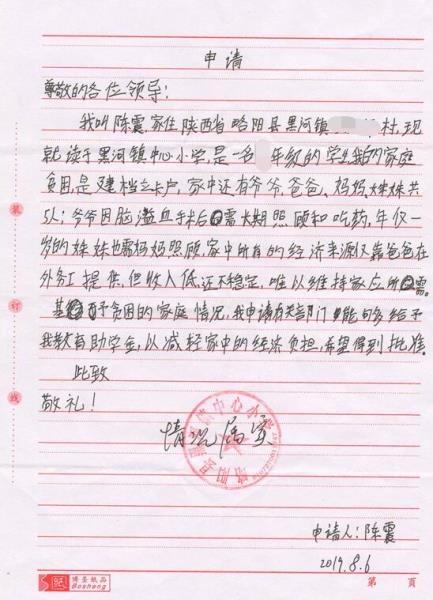 申请
尊敬的各位领导:
我叫陈震,家住陕西省略阳县黑河镇 村,现
就读于黑河镇中心小学,是一名 年级的学生,我的家庭
贫困,是建档立卡户,家中还有爷爷、爸爸、妈妈、妹妹共
5人;爷爷因脑溢血手术后需长期照顾和吃药,年仅一
岁的妹妹也需妈妈照顾,家中所有的经济来源仅靠爸爸在
外务工提供,但收入低还不稳定,难以维持家庭所需.
基于贫困的家庭情况,我申请有关部门能够多给予
我教育助学金,以减轻家中的经济负担,希望得到批准.
此致
敬礼!
情况属实
中心小学
装
订
线
申请人:陈震
2019.8.6
博圣纸品
Bosheng
第 页